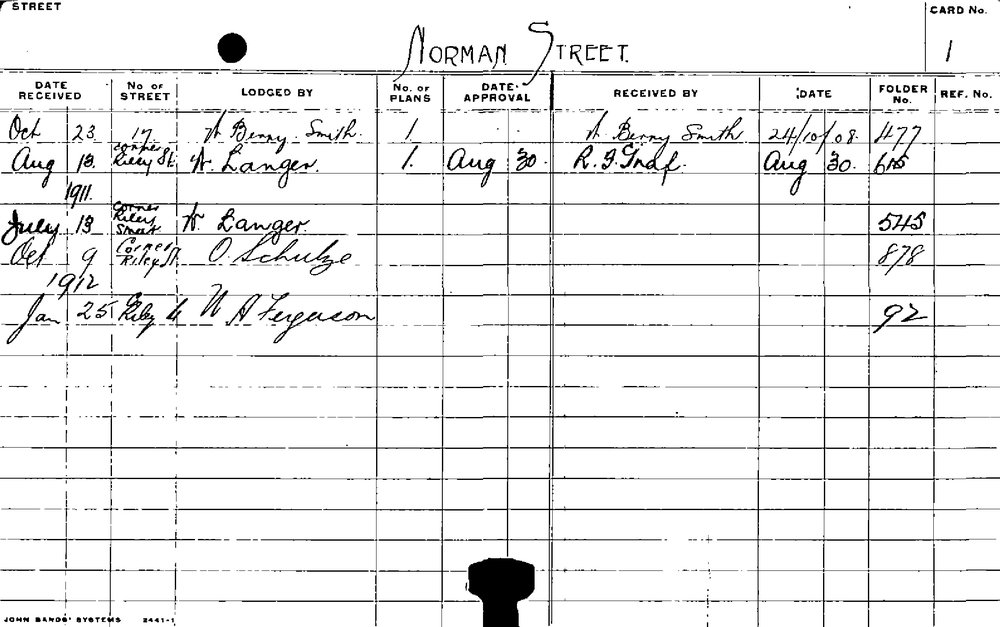 STREET
CARD No.
NORMAN STREET.
1
DATE RECEIVED No of STREET LODGED BY No. of PLANS DATE APPROVAL RECEIVED BY DATE FOLDER No. REF. No.
Oct 23 17 Benny Smith. 1. Benny Smith 24/10/08. 477
Aug 13. corner Riley St. W. Langer. 1. Aug 30. R. J. Graf. Aug 30.
1911.
July 13 corner Riley Street W. Langer. 545
Oct 9 Corner Riley St. O. Schulze 878
1912
Jan 25 Riley A Ferguson 92
JOHN SANDS' SYSTEMS 2441-1